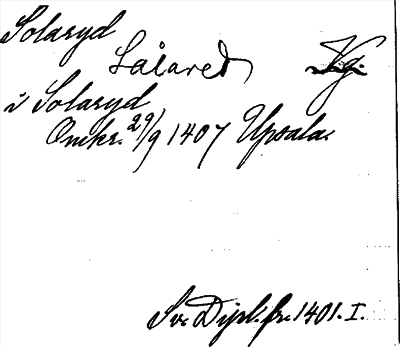 Solaryd
Låared Kg.
i Solaryd
Omkr. 29/9 1407 Upsala.
Sv. Dipl. fr. 1401. I.